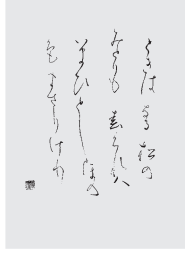 ときはなる松の
みとりも春くれは
いまひとしほの
色まさりけり